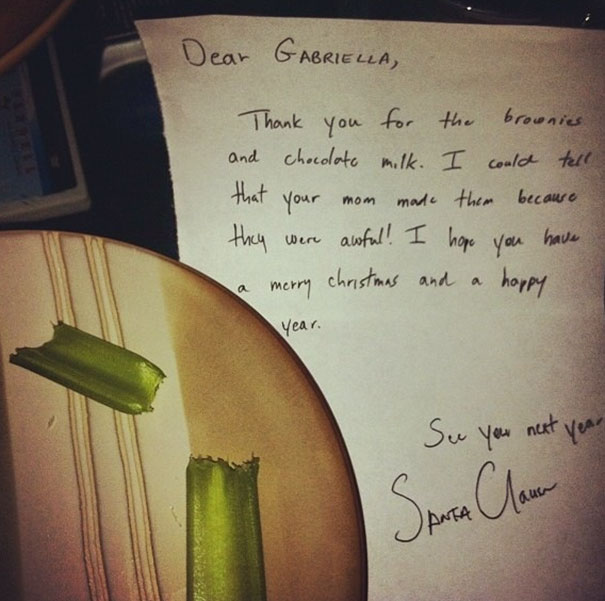 Dear GABRIELLA,
Thank you for the brownies
and chocolate milk. I could tell
that your mom made them because
they were awful! I hope you have
a merry christmas and a happy
year.
See you next year
SANTA Claus